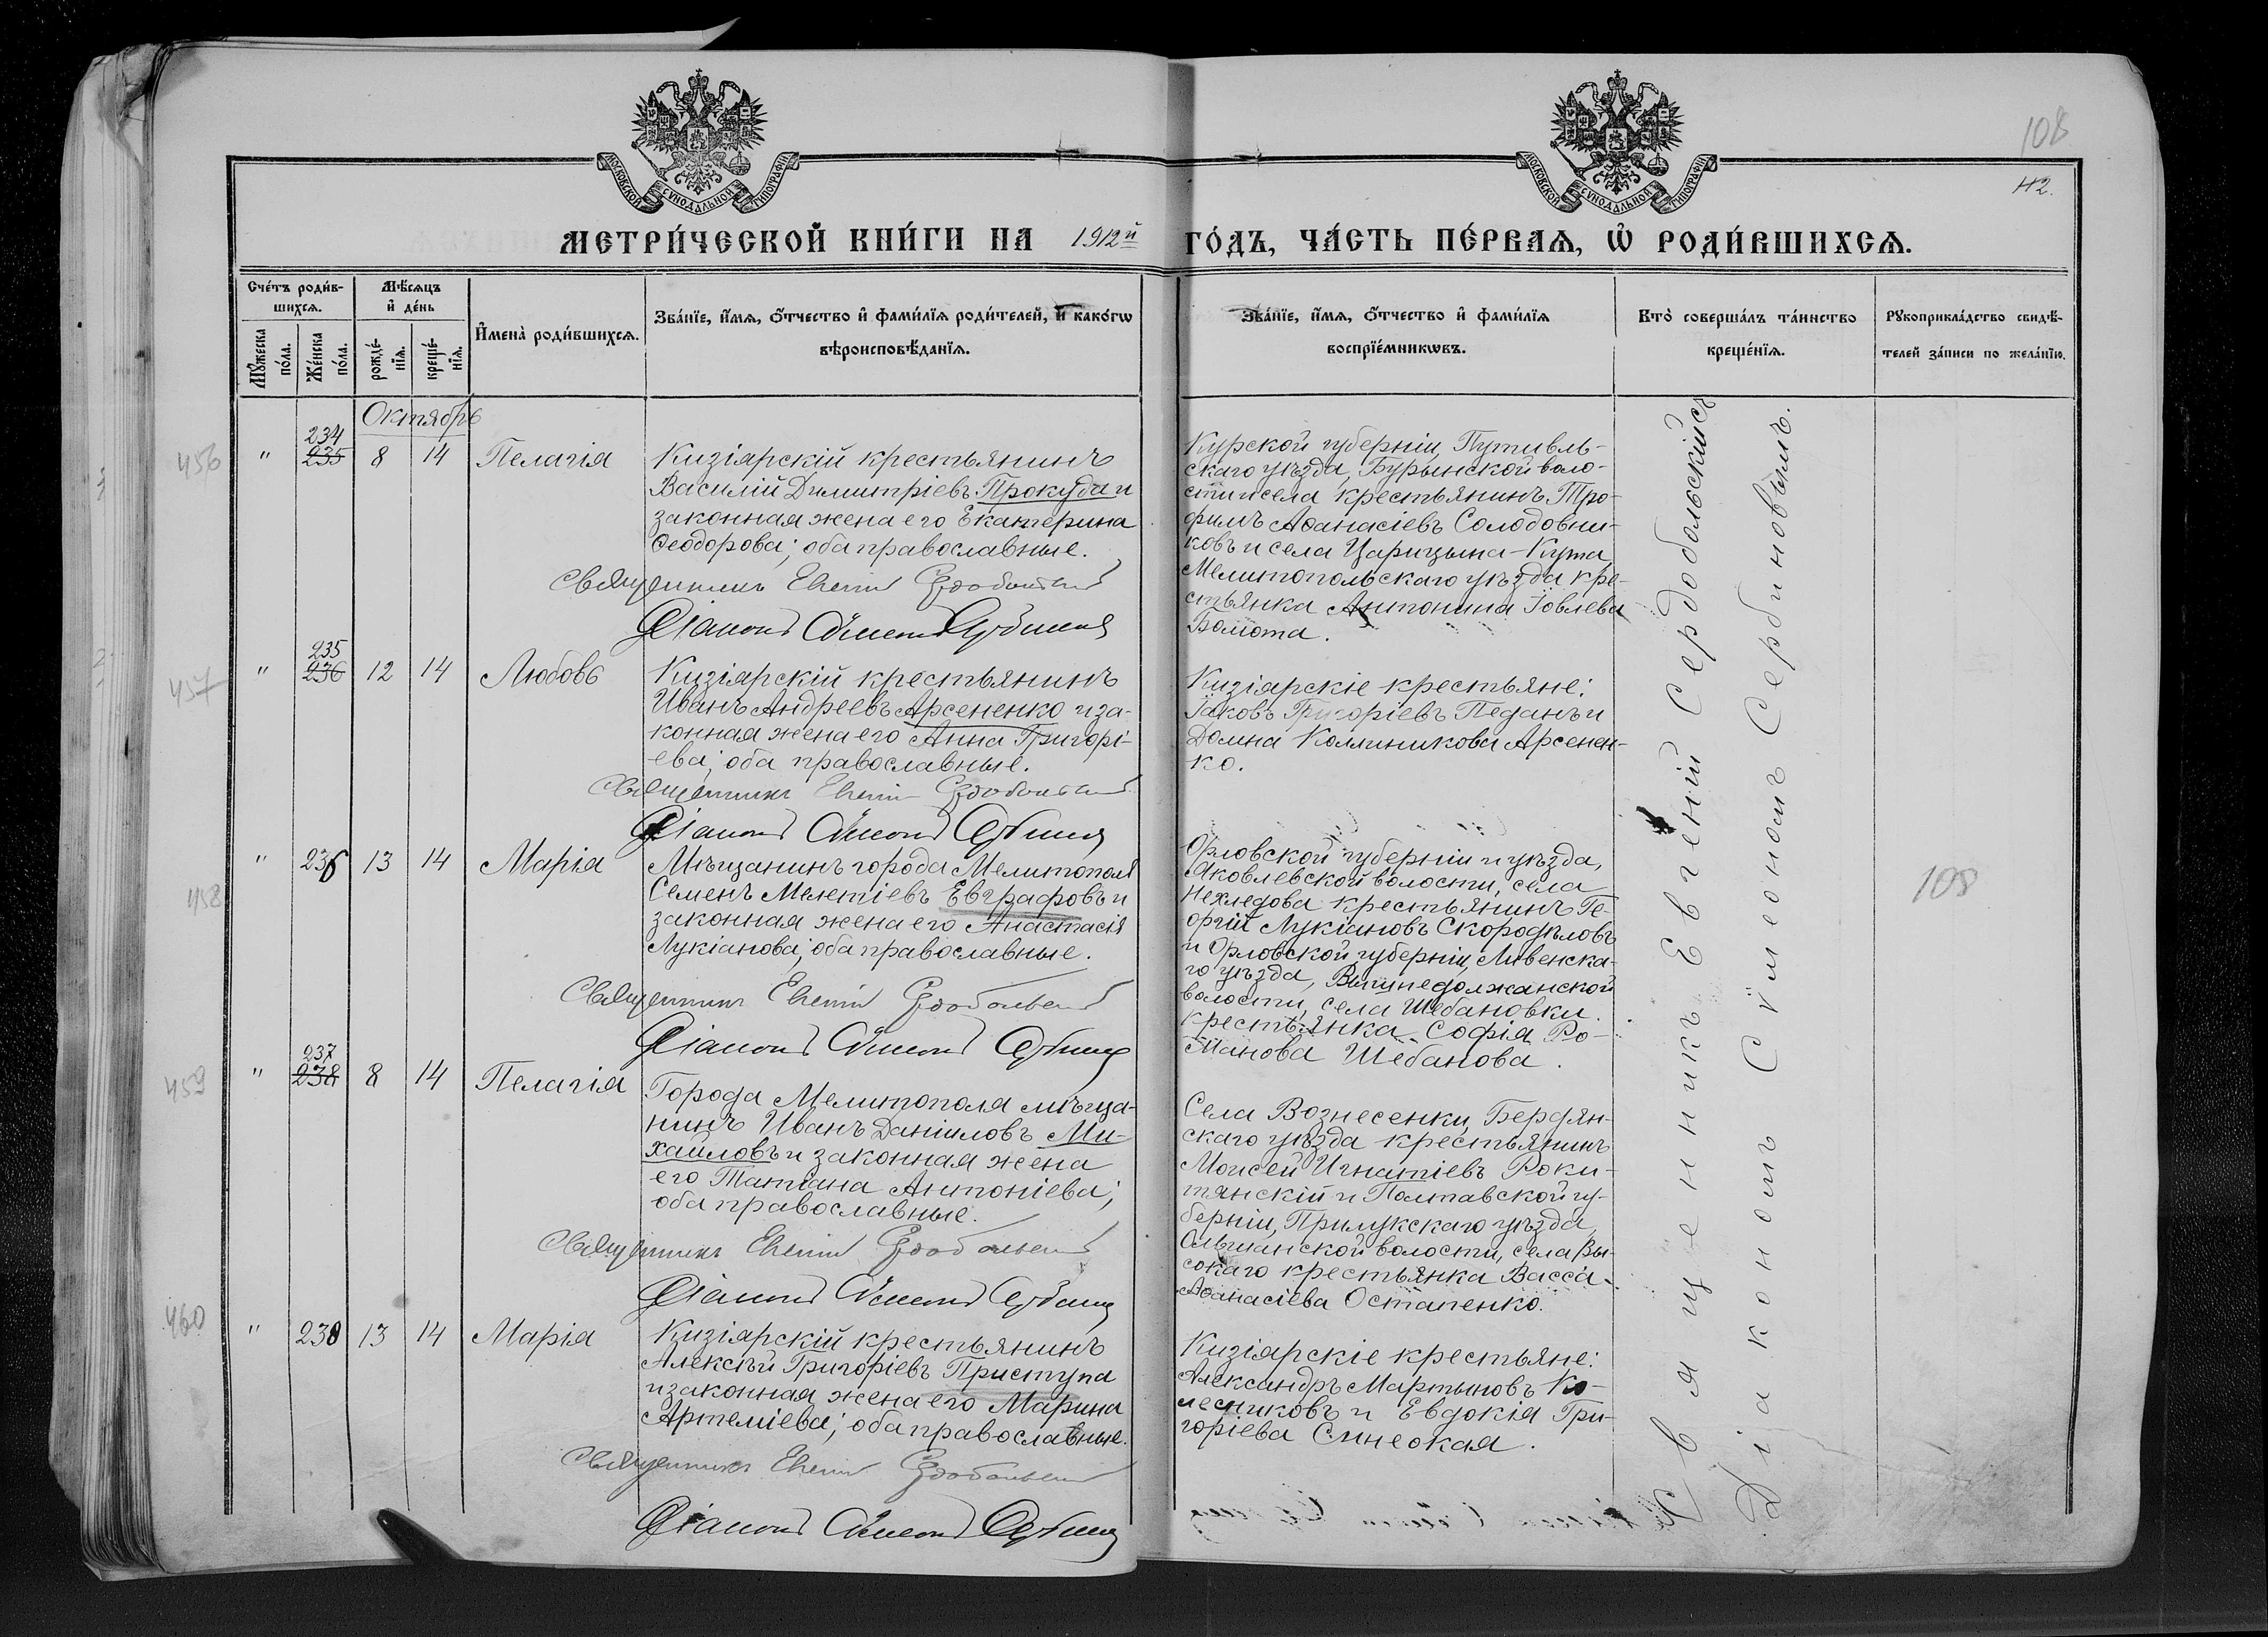 108
42.
МОСКОВСКОЙ СѴНОДАЛЬНОЙ ТИПОГРАФІИ
МОСКОВСКОЙ СѴНОДАЛЬНОЙ ТИПОГРАФІИ
МЕТРИ́ЧЕСКОЙ КНИ́ГИ НА 1912й ГО́ДЪ, ЧА́СТЬ ПЕ́РВАѦ, Ѽ РОДИ́ВШИХСѦ.
Сче́тъ роди́в-
шихсѧ.
Мꙋ́жеска по́ла.
Же́нска по́ла.
Мѣ́сѧцъ и де́нь
рожде́-нїѧ.
креще́-нїѧ.
И҆мена̀ роди́вшихсѧ.
Зва́нїе, и҆́мѧ, о҆́тчество и҆ фами́лїѧ роди́телей, и҆ како́гѡ
вѣроисповѣ́данїѧ.
Зва́нїе, и҆́мѧ, о҆́тчество и҆ фами́лїѧ
воспрїе́мникѡвъ.
Кто̀ соверша́лъ та́инство
креще́нїѧ.
Рꙋкоприкла́дство свидѣ́-
телей за́писи по жела́нїю.
Октябрь
456
" 234 235 8 14 Пелагія
Кизіярскій крестьянинъ
Василій Димитріевъ Прокуда и
законная жена его Екатерина
Ѳеодорова; оба православные.
Священникъ Евгеній Сердобольскій
Діаконъ Сѵмеонъ Сербиновъ
Курской губерніи, Путивль-
скаго уѣзда, Бурынской воло-
сти и села крестьянинъ Тро-
фимъ Аѳанасіевъ Солодовни-
ковъ и села Царицына-Кута
Мелитопольскаго уѣзда кре-
стьянка Антонина Іовлева
Болюта.
457
" 235 236 12 14 Любовь
Кизіярскій крестьянинъ
Иванъ Андреевъ Арсененко и за-
конная жена его Анна Григорі-
ева; оба православные.
Священникъ Евгеній Сердобольскій
Діаконъ Сѵмеонъ Сербиновъ
Кизіярскіе крестьяне:
Іаковъ Григоріевъ Педанъ и
Домна Каллиникова Арсенен-
ко.
458
" 236 13 14 Марія
Мѣщанинъ города Мелитополя
Семенъ Мелетіевъ Евграфовъ и
законная жена его Анастасія
Лукіанова; оба православные.
Священникъ Евгеній Сердобольскій
Діаконъ Сѵмеонъ Сербиновъ
Орловской губерніи и уѣзда,
Яковлевской волости, села
Нехледова крестьянинъ Ге-
оргій Лукіановъ Скородѣловъ
и Орловской губерніи, Ливенска-
го уѣзда, Вышнедолжанской
волости, села Шебановки
крестьянка София Ро-
манова Шебанова.
108
459
" 237 238 8 14 Пелагія
Города Мелитополя мѣща-
нинъ Иванъ Даніиловъ Ми-
хайловъ и законная жена
его Татіана Антоніева;
оба православные.
Священникъ Евгеній Сердобольскій
Діаконъ Сѵмеонъ Сербиновъ
Села Вознесенки, Бердян-
скаго уѣзда крестьянинъ
Моисей Игнатіевъ Роки-
тянскій и Полтавской гу-
берніи, Прилукскаго уѣзда,
Ольшанской волости, села Вы-
сокаго крестьянка Васса
Аѳанасіева Остапенко.
460
" 238 13 14 Марія
Кизіярскій крестьянинъ
Алексѣй Григоріевъ Приступа
и законная жена его Марина
Артеміева; оба православные.
Священникъ Евгеній Сердобольскій
Діаконъ Сѵмеонъ Сербиновъ
Кизіярскіе крестьяне:
Александръ Мартыновъ Ко-
лесниковъ и Евдокія Гри-
горіева Синеокая.
Священникъ Евгеній Сердобольскій съ
Діакономъ Сѵмеономъ Сербиновымъ.